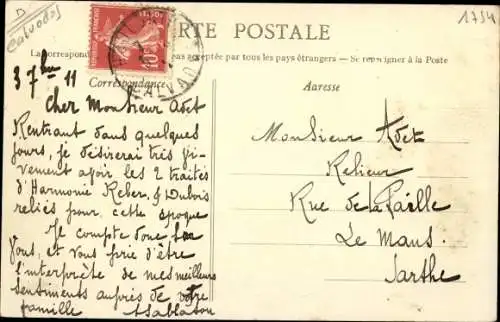 D
Calvados
1754
CARTE POSTALE
La correspond pas acceptée par tous les pays étrangers. — Se renseigner à la Poste
Correspondance
Adresse
10
CALVADOS
3 7bre 11
Cher Monsieur Adet
Rentrant dans quelques
jours, je désirerai très vi-
vement avoir les 2 traités
d'Harmonie Reber & Dubois
reliés pour cette époque
Je compte donc sur
vous, et vous prie d'être
l'interprète de mes meilleurs
sentiments auprès de votre
famille
Monsieur Adet
Relieur
Rue de la Paille
Le Mans
Sarthe